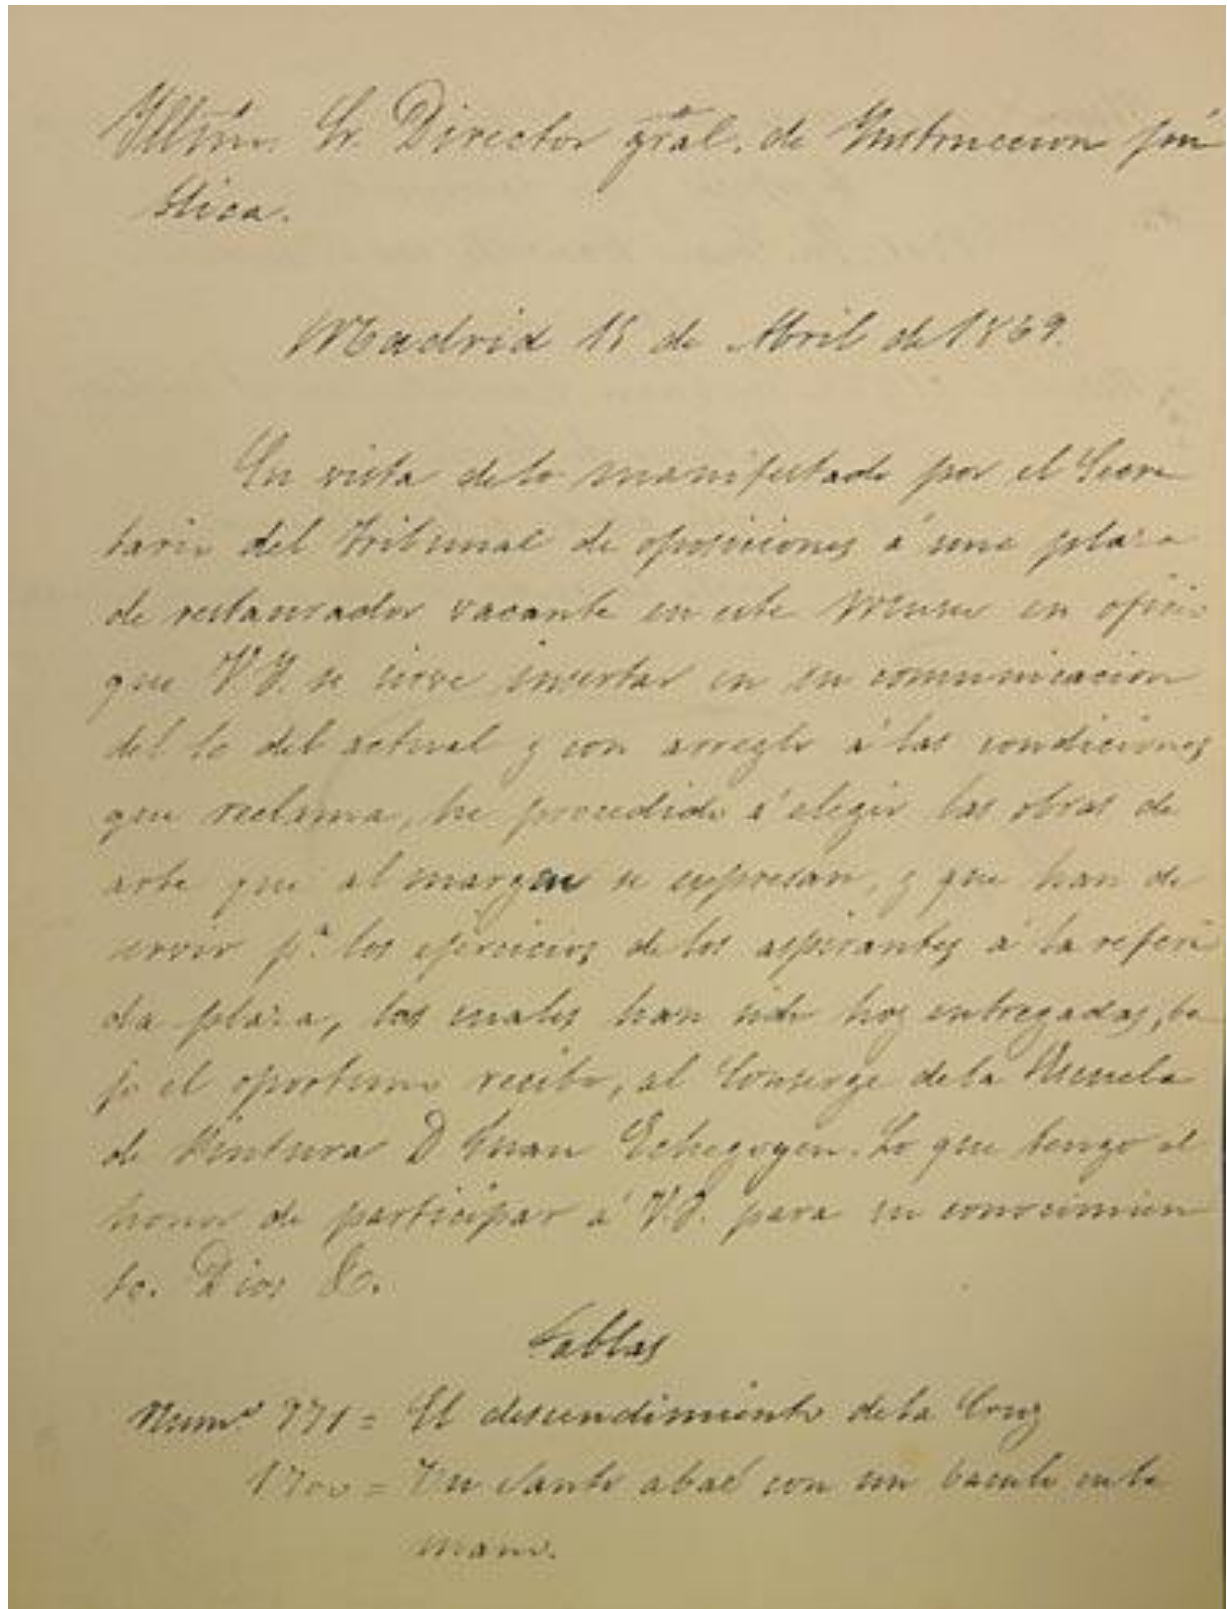 Illmo. Sr. Director gral. de Instruccion pú
blica.
Madrid 15 de Abril de 1869.
En vista de lo manifestado por el Secre
tario del tribunal de oposiciones á una plaza
de restaurador vacante en este Museo en oficio
que V.I. se sirve insertar en su comunicacion
del 10 del actual y con arreglo á las condiciones
que reclama, he procedido á elegir las obras de
arte que al margen se espresan, y que han de
servir pa. los ejercicios de los aspirantes á la referi
da plaza, las cuales han sido hoy entregadas, ba
jo el oportuno recibo, al Conserge de la Escuela
de Pintura D Juan Echegoyen. Lo que tengo el
honor de participar á V.I. para su conocimien
to. Dios &.
Tablas
Numo. 771 = El descendimiento de la Cruz
1700 = Un Santo abad con un baculo en la
mano.